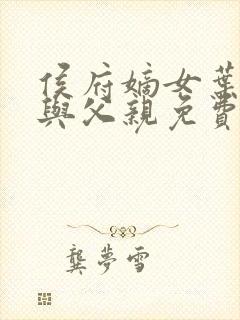 侯府嫡女葉
與父親免費
龔夢雪